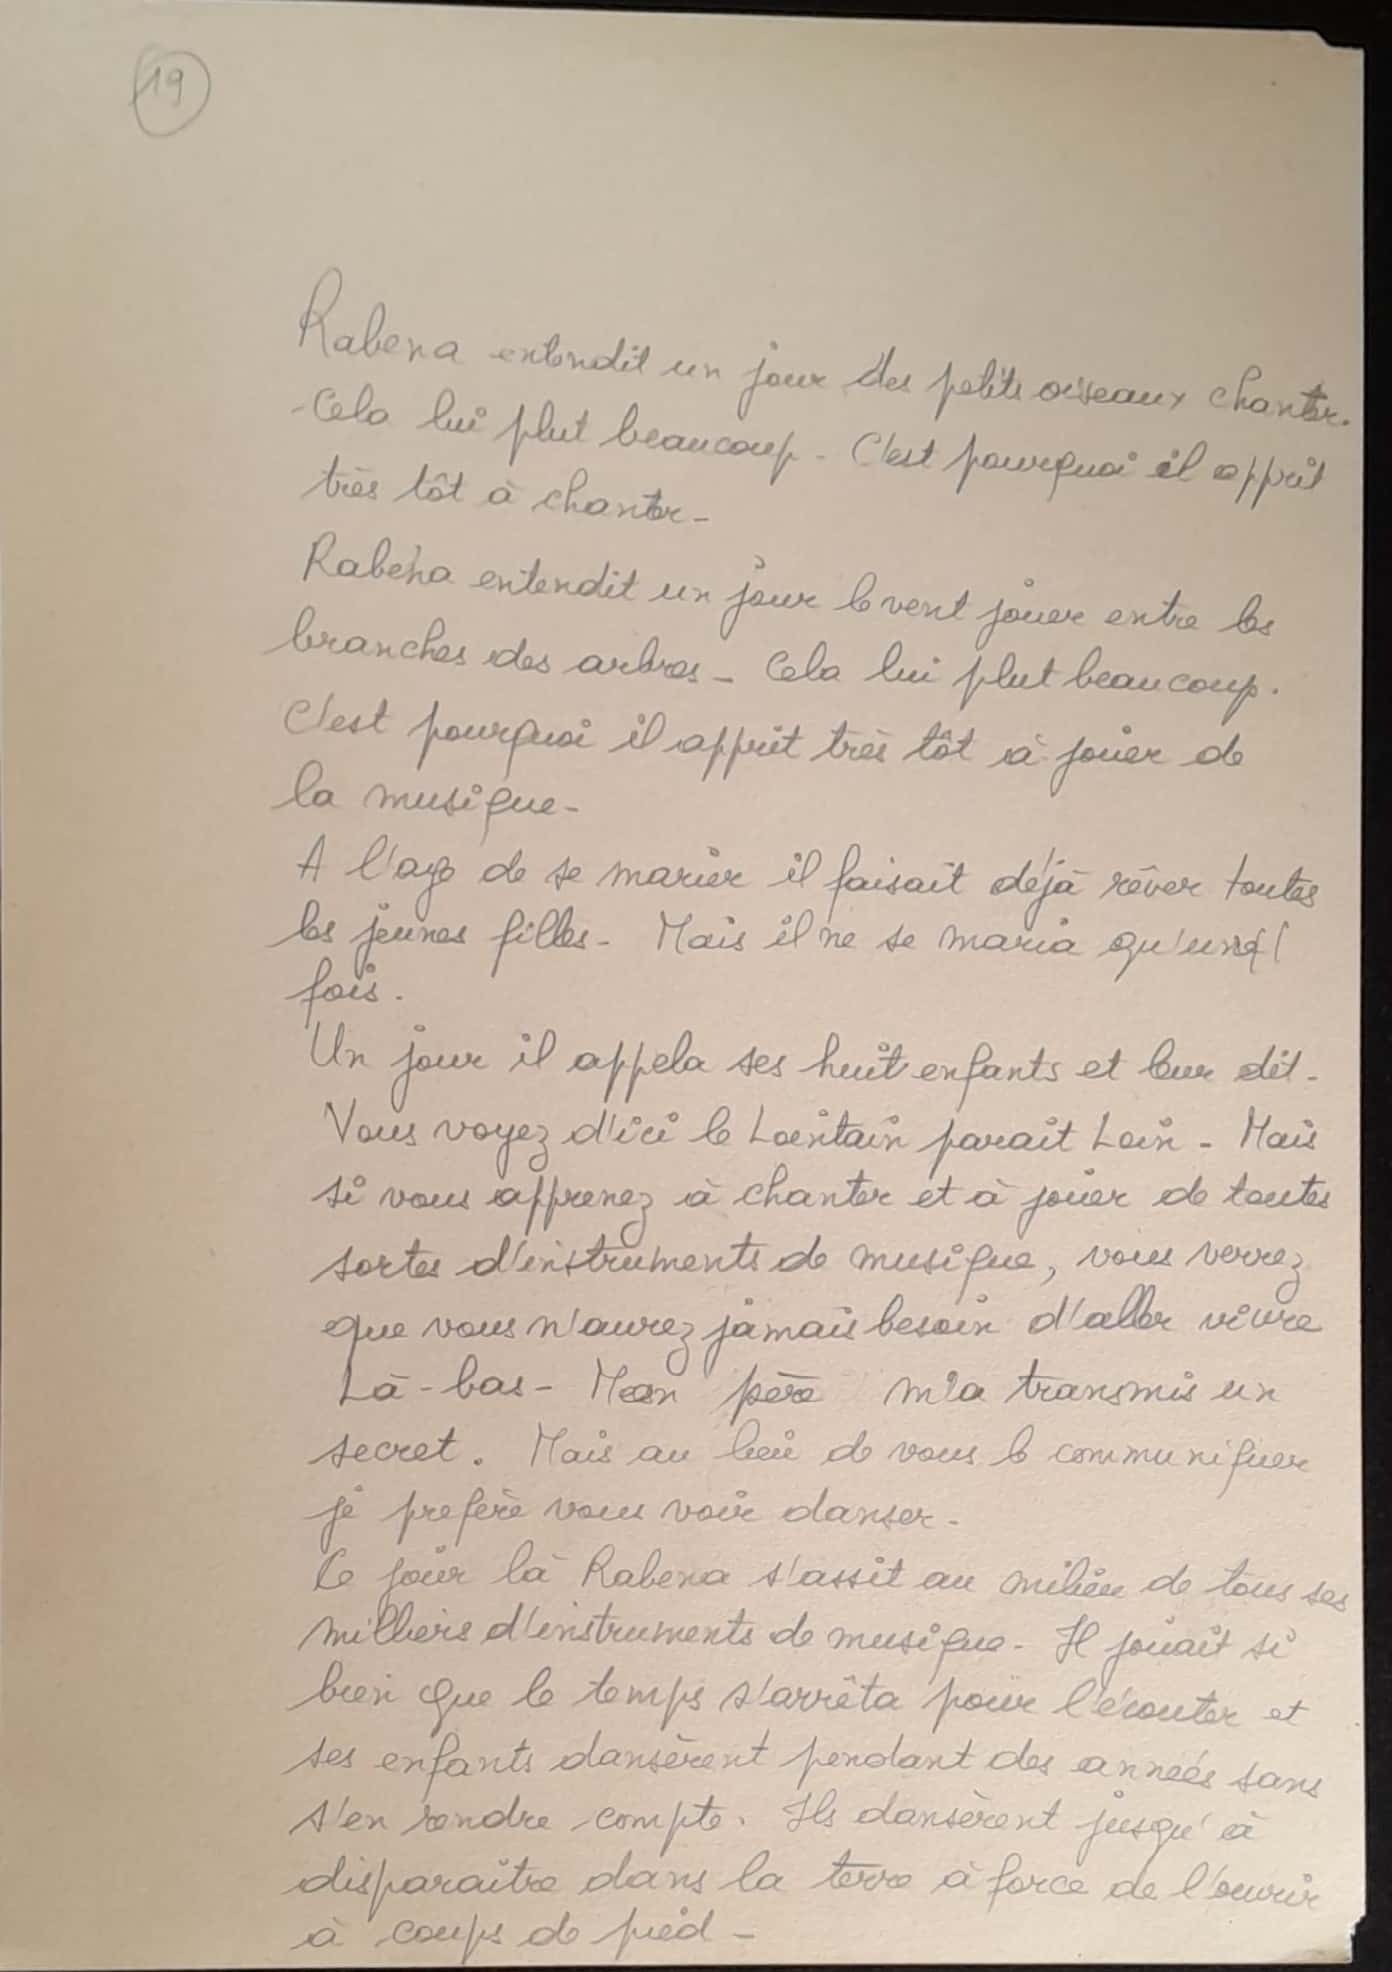 19
Rabéna entendit un jour des petits oiseaux chanter.
- Cela lui plut beaucoup - C'est pourquoi il apprit
très tôt à chanter -
Rabéna entendit un jour le vent jouer entre les
branches des arbres - Cela lui plut beaucoup.
C'est pourquoi il apprit très tôt à jouer de
la musique -
A l'age de se marier il faisait déjà rêver toutes
les jeunes filles - Mais il ne se maria qu'une
fois.
Un jour il appela ses huit enfants et leur dit -
Vous voyez d'ici le Lointain parait Loin - Mais
si vous apprenez à chanter et à jouer de toutes
sortes d'instruments de musique, vous verrez
que vous n'aurez jamais besoin d'aller vivre
Là-bas - Mon père m'a transmis un
secret. Mais au lieu de vous le communiquer
je prefère vous voir danser -
Ce jour là Rabéna s'assit au milieu de tous ses
milliers d'instruments de musique - Il jouait si
bien que le temps s'arrêta pour l'écouter et
ses enfants dansèrent pendant des années sans
s'en rendre compte. Ils dansèrent jusqu'à
disparaître dans la terre à force de l'ouvrir
à coups de pied -